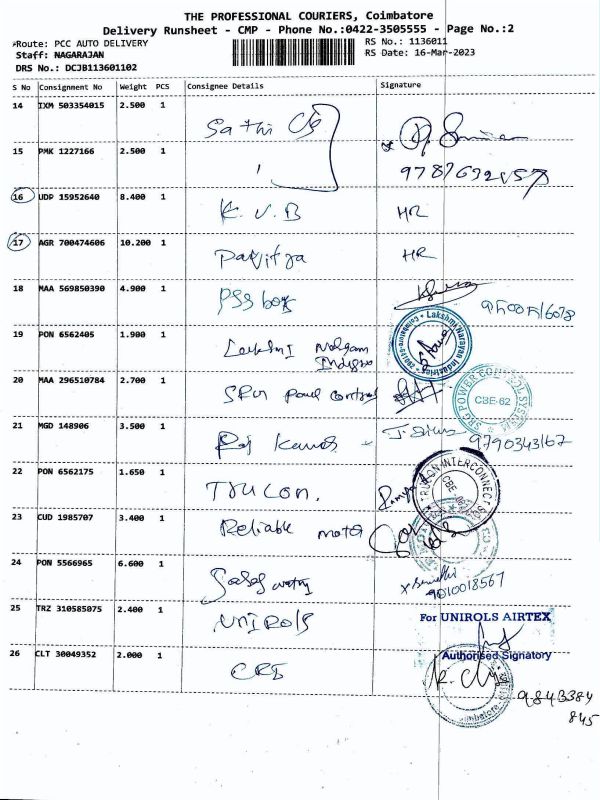 THE PROFESSIONAL COURIERS, Coimbatore
Delivery Runsheet - CMP - Phone No.:0422-3505555 - Page No.:2
*Route: PCC AUTO DELIVERY RS No.: 1136011
Staff: NAGARAJAN RS Date: 16-Mar-2023
DRS No.: DCJB113601102
S No Consignment No Weight PCS Consignee Details Signature
14 IXM 503354015 2.500 1 Sathi
15 PMK 1227166 2.500 1
16 UDP 15952640 8.400 1 K.V.B HR
17 AGR 700474606 10.200 1 Pavitra HR
18 MAA 569850390 4.900 1 PSS
19 PON 6562405 1.900 1 Lakshmi
Lakshmi Narayan Industries
20 MAA 296510784 2.700 1 control
SRG POWER CONTROL SYSTEM
CBE-62
21 MGD 148906 3.500 1 Raj 9790343167
22 PON 6562175 1.650 1 Trucon.
CBE
23 CUD 1985707 3.400 1 Reliable motor
24 PON 5566965 6.600 1 9010018567
25 TRZ 310585075 2.400 1 UNIROLS
For UNIROLS AIRTEX
Authorised Signatory
26 CLT 30049352 2.000 1 CRI
9843384
845